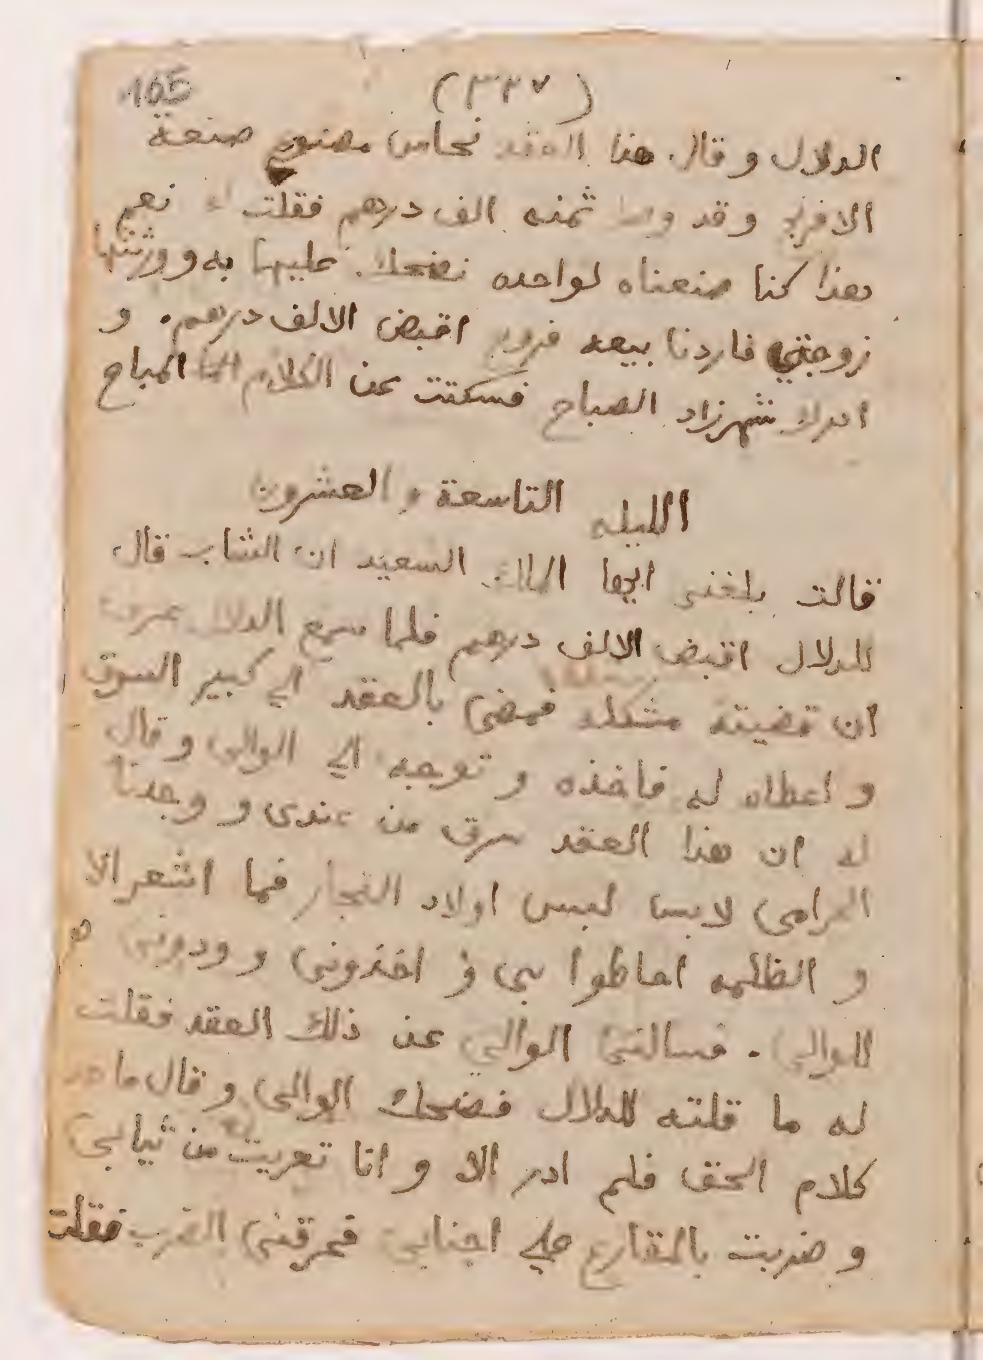 165
(٣٢٧)
الدلال وقال هذا العقد نحاس مصنوع صنعة
الافرنج وقد وصل ثمنه الف درهم فقلت له نعم
هذا كنا صنعناه لواحده نضحك عليها به وورثتها
زوجتي فاردنا بيعه فروح اقبض الالف درهم. و
ادرك شهرزاد الصباح فسكتت عن الكلام المباح
الليله التاسعة والعشرون
قالت بلغني ايها الملك السعيد ان الشاب قال
للدلال اقبض الالف درهم فلما سمع الدلال عرف
ان قضيته مشكله فمضى بالعقد الي كبير السوق
واعطاه له فاخذه وتوجه الي الوالى وقال
له ان هذا العقد سرق من عندى ووجدنا
الحرامى لابسا لبس اولاد التجار فما اشعر الا
والظلمه احاطوا بى و اخذونى وودونى
للوالى. فسالنى الوالي عن ذلك العقد فقلت
له ما قلته للدلال فضحك الوالى وقال ما هذ
كلام الحق فلم ادر الا وانا تعريت من ثيابى
وضربت بالمقارع على اجنابى فحرقنى الضرب فقلت